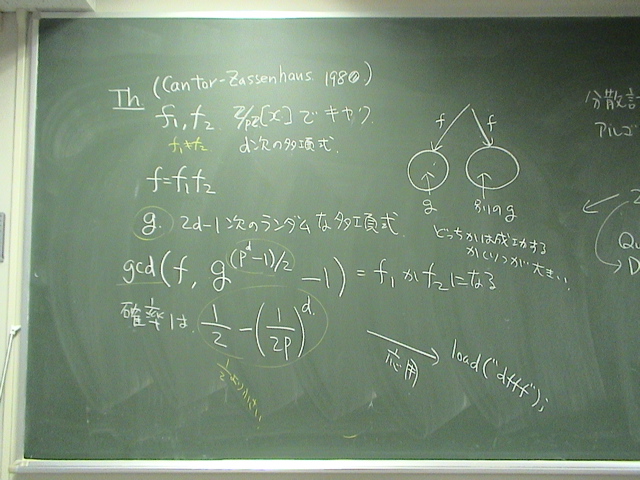 Th (Cantor-Zassenhaus 1980)
f₁, f₂ ℤ/pℤ[x]でキヤク
f₁≠f₂ d次の多項式.
f=f₁f₂
g. 2d-1次のランダムな多項式.
gcd(f, g^{(p^d-1)/2} -1) = f₁かf₂になる
確率は. 1/2 - (1/2p)^d.
f f
g 別のg
どっちかは成功する
かくりつが大きい!
応用 load("dfff");
分散計
アルゴ
Qu
D